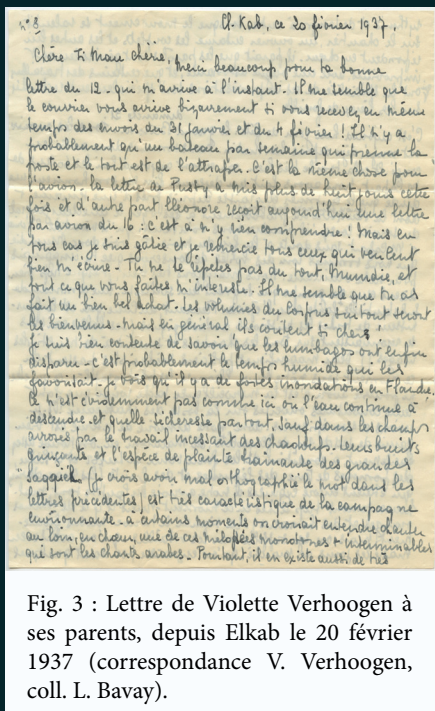 n° 8
El-Kab, ce 20 février 1937.
Chère Ti Mau chérie,
Merci beaucoup pour ta bonne
lettre du 12 - qui m'arrive à l'instant. Il me semble que
le courrier vous arrive bizarrement si vous recevez en même
temps des envois du 31 janvier et du 4 février ! Il n'y a
probablement qu'un bateau par semaine qui prenne la
poste et le tout est de l'attraper. C'est la même chose pour
l'avion. la lettre de Pusty a mis plus de huit jours cette
fois et d'autre part Eléonore reçoit aujourd'hui une lettre
par avion du 16 : c'est à n'y rien comprendre ! Mais en
tous cas je suis gâtée et je remercie tous ceux qui veulent
bien m'écrire - Tu ne te répètes pas du tout, Mumdie, et
tout ce que vous faites m'intéresse. Il me semble que tu as
fait un bien bel achat. Les volumes du Corpus surtout seront
les bienvenus - mais en général ils coûtent si cher !
Je suis bien contente de savoir que les lumbagos ont enfin
disparu - c'est probablement le temps humide qui les
favorisait. Je vois qu'il y a de fortes inondations en Flandre.
Ce n'est évidemment pas comme ici où l'eau continue à
descendre. et quelle sécheresse partout, sauf dans les champs
arrosés par le travail incessant des chadoufs. Leurs bruits
grinçants et l'espèce de plainte trainante des grandes
saqqieh (je crois avoir mal orthographié le mot dans les
lettres précédentes) est très caractéristique de la campagne
environnante. à certains moments on croirait entendre chanter
au loin, en choeur, une de ces mélopées monotones + interminables
que sont les chants arabes. Pourtant, il en existe aussi de très
Fig. 3 : Lettre de Violette Verhoogen à
ses parents, depuis Elkab le 20 février
1937 (correspondance V. Verhoogen,
coll. L. Bavay).